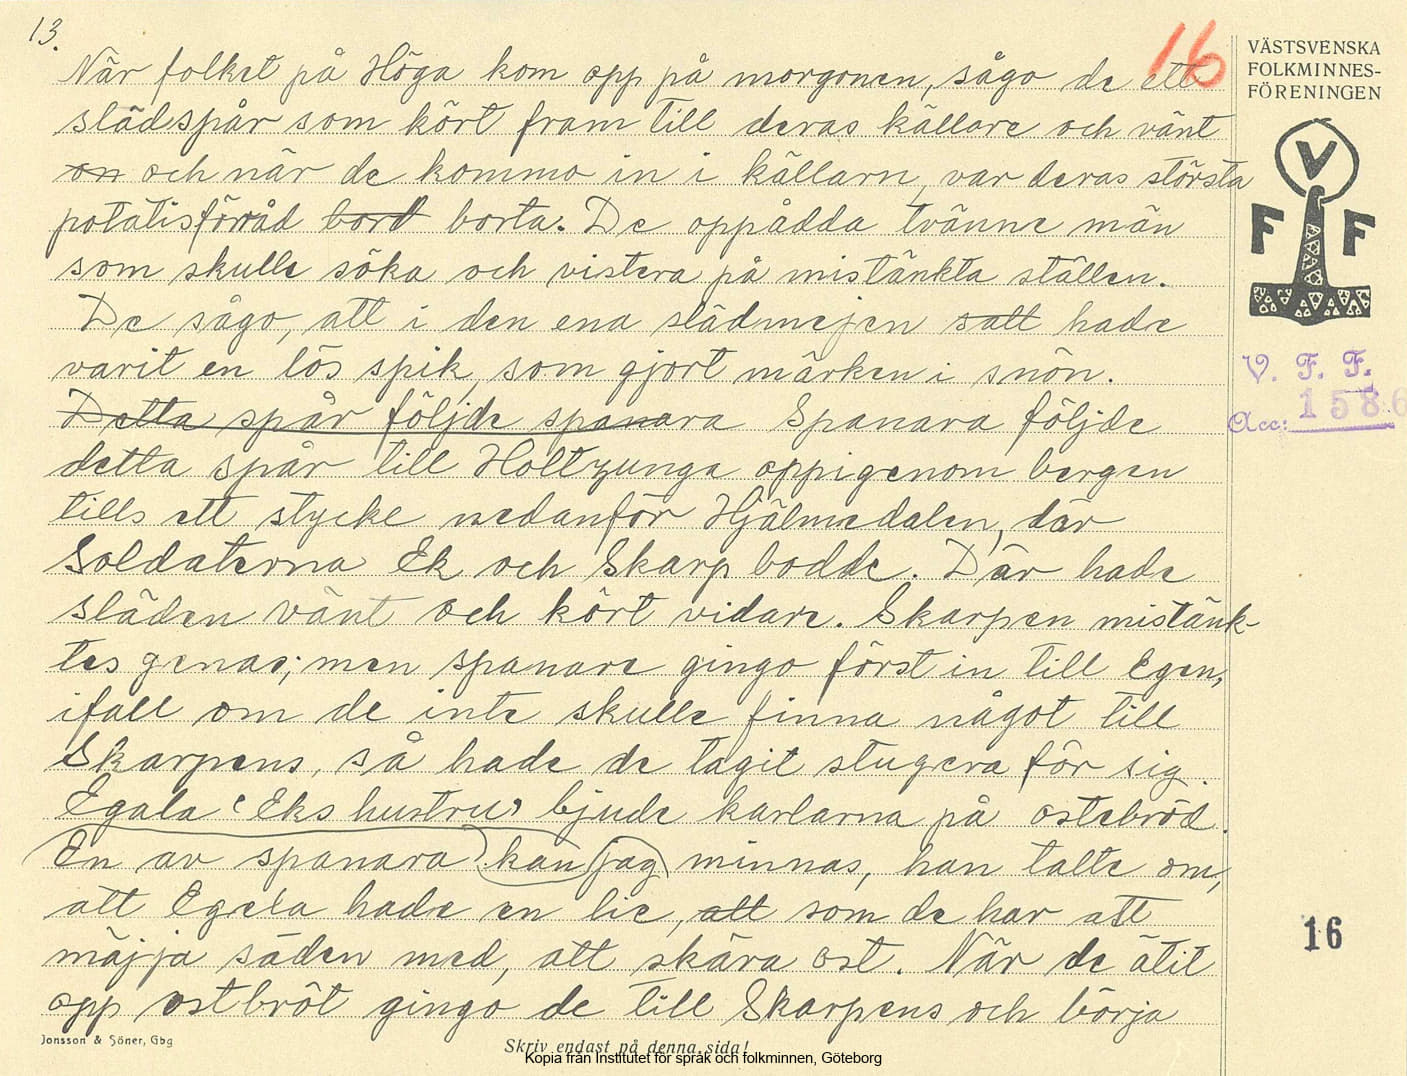 13.
16
När folket på Höga kom opp på morgonen, sågo de ett
slädspår som kört fram till deras källare och vänt
on och när de kommo in i källarn, var deras största
potatisförråd bord borta. De oppådda tvänne män
som skulle söka och vistera på mistänkta ställen.
De sågo, att i den ena slädmejen satt hade
varit en lös spik, som gjort märken i snön.
Detta spår följde spanara Spanara följde
detta spår till Holtzunga oppigenom bergen
tills ett stycke nedanför Hjälmedalen, där
Soldaterna Ek och Skarp bodde. Där hade
släden vänt och kört vidare. Skarpen mistänk-
tes genas; men spanare gingo först in till Egen,
ifall om de inte skulle finna något till
Skarpens, så hade de tagit stugera för sig.
Egala (Eks hustru) bjude karlarna på ostebröd.
En av spanara kan jag minnas, han talte om,
att Egela hade en lie, att som de har att
mäjja säden med, att skära ost. När de ätit
opp ostbröt gingo de till Skarpens och börja
VÄSTSVENSKA
FOLKMINNES-
FÖRENINGEN
V
F F
V. F. F.
Acc: 1586
16
Jonsson & Söner, Gbg
Skriv endast på denna sida!
Kopia från Institutet för språk och folkminnen, Göteborg